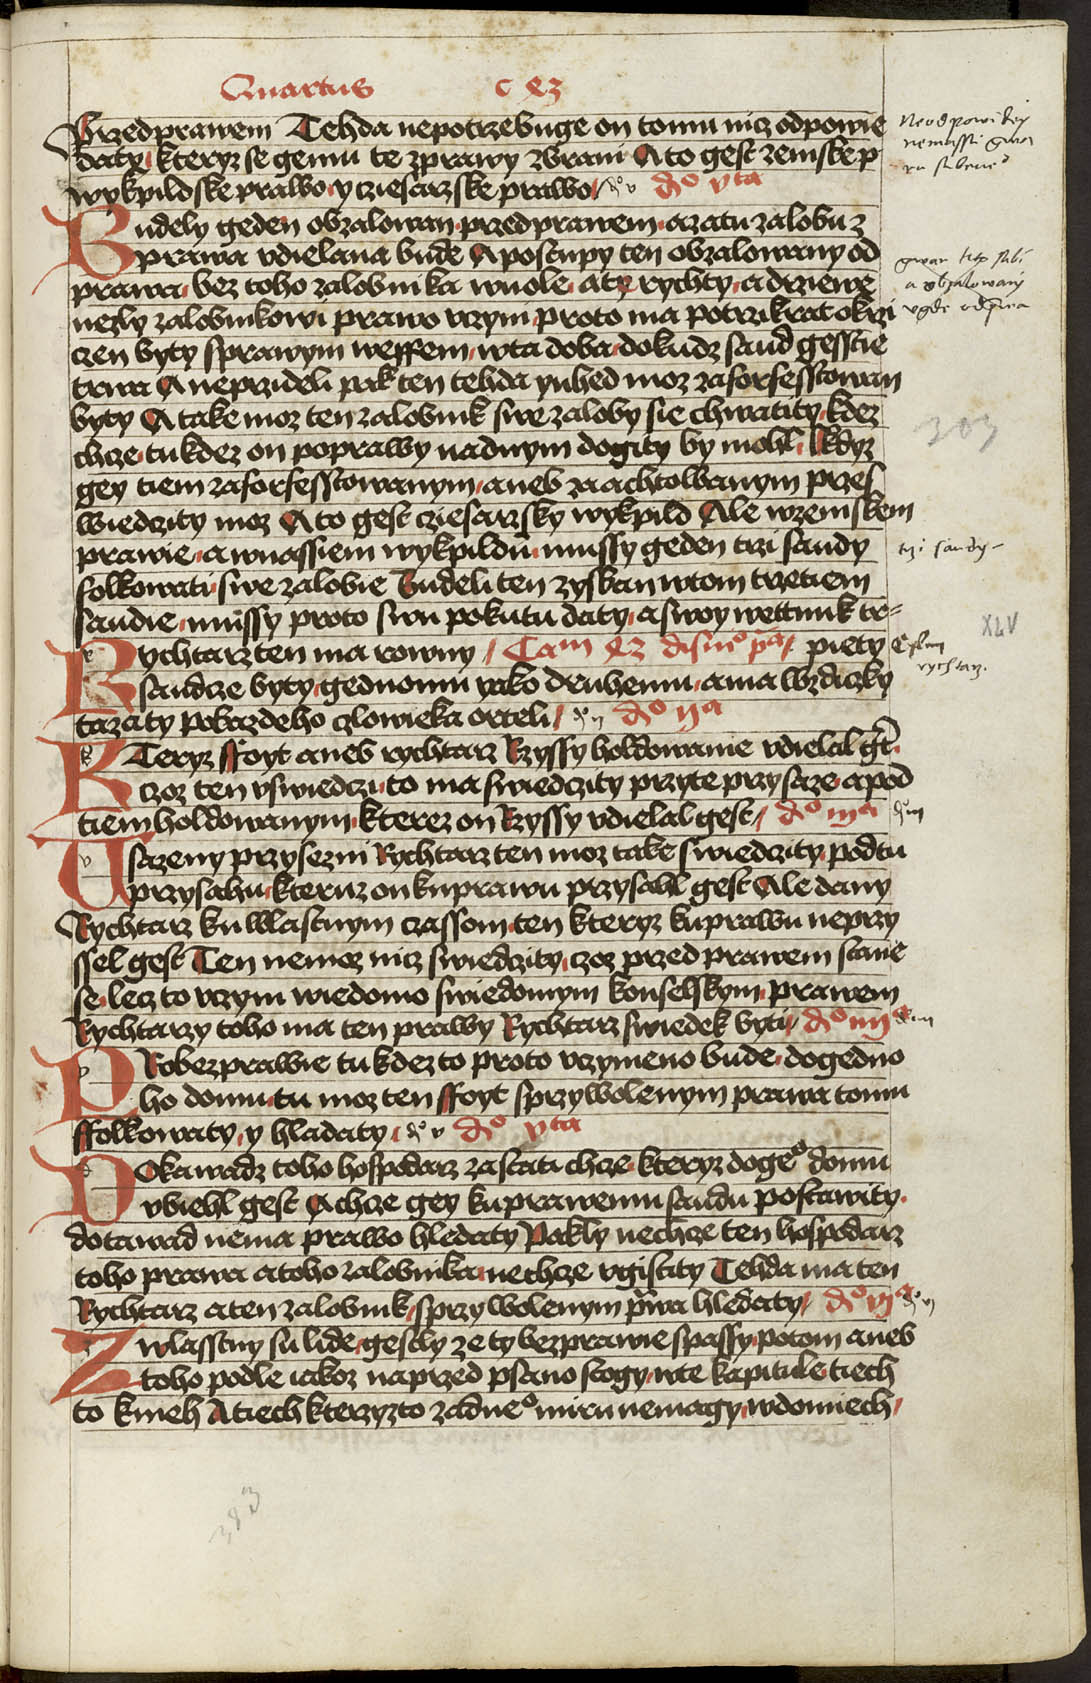 Quartus c
Przed prawem Tehda nepotrzebuge on tomu nicz odpowie
daty kteryz se gemu te zprawy zbrani A to gest zemske p
wykpildske prawo y cziesarzske prawo
Budely geden obzalowan przed prawem a za tu zalobu z
prawa vdielana bude A postupy ten obzalowany od
prawa bez toho zalobnika wuole a te rychty a drziewe
nezly zalobnikowi prawo vczym proto ma potrzikrat okrzi
czen byty sprawym weffem w ta doba dokudz saud gesstie
trwa A neprzideli pak ten tehda ynhed moz zaforfesstowan
byty A take moz ten zalobnik swe zaloby sie chwatity kdez
chcze tu kdez on poprawy nad nym dogity by mohl Kdyz
gey tiem zaforfesstowanym aneb zaachtolbanym przes
wiedczity moz A to gest cziesarzsky wykpild Ale w zemskem
prawie a w nassiem wykpildu mussy geden trzi saudy
folkowati swe zalobie Budeli ten zyskan w tom trzetiem
saudie mussy proto swu pokutu daty a swoy wettunk te
Rychtarz ten ma rowny piety
saudcze byty gednomu yako druhemu a ma wzdiczky
tazaty pokazdeho czlowieka orteli
Kteryz ffoyt aneb rychtarz Rzyssy holdowanie vdielal gt
czoz ten vswiedczi to ma swiedczity przy te przysaze a pod
tiem holdowanym kterez on Rzyssy vdielal gest
Vsazeny przyseznı Rychtarz ten moz take swiedczity pod tu
przysahu kteruz on ku prawu przysahl gest Ale dany
Rychtarz ku wlastnym czassom ten kteryz ku prawu neprzy
ssel gest Ten nemoz nicz swiedczity czoz przed prawem stane
se lecz to vczym wiedomo swiedomym konselskym prawem
Rychtarzy toho ma ten prawy Rychtarz swiedek byti
Pro bezprawie tu kdez to proto vczymeno bude do gedno
ho domu tu moz ten ffoyt s przywolenym prawa tomu
ffolkowaty y hladaty
Dokawadz toho hospodarz zastati chcze kteryz do geo domu
vbiehl gest A chcze gey ku prawemu saudu postawity
dotawad nema prawo hledaty Pakly nechcze ten hospodarz
toho prawa a toho zalobnika nechcze vgistity Tehda ma ten
Rychtarz a ten zalobnik s przywolenym pwa hledaty
Zwlasstny su lide gestly ze ty bezprawie spassy potom aneb
toho podle iakoz naprzed psano stogy w te kapitule tiech
to kneh A tiech kteryzto zadneo miru nemagy w domiech
303
trzi saudy
XLV
rychtarz
383